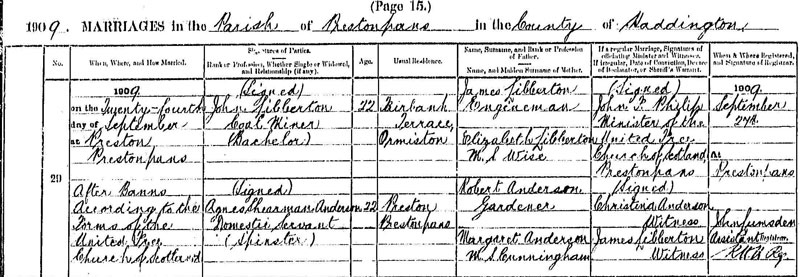 (Page 15.)
1909. MARRIAGES in the Parish of Prestonpans in the County of Haddington
No.
When, Where, and How Married.
Signatures of Parties.
Rank or Profession, Whether Single or Widowed, and Relationship (if any).
Age.
Usual Residence.
Name, Surname, and Rank or Profession of Father.
Name, and Maiden Surname of Mother.
If a regular Marriage, Signatures of officiating Minister and Witnesses.
If irregular, Date of Conviction, Decree of Declarator, or Sheriff's Warrant.
When & Where Registered, and Signature of Registrar.
29
1909
on the Twenty-fourth
day of September
at Preston
Prestonpans
After Banns
According to the
Forms of the
United Free
Church of Scotland
(Signed)
John Gibberton
Coal Miner
(Bachelor)
(Signed)
Agnes Shearman Anderson
Domestic Servant
(Spinster)
22
22
Terrace,
Ormiston
Preston
Prestonpans
James Gibberton
Engineman
Elizabeth Gibberton
M.S Wise
Robert Anderson
Gardener
Margaret Anderson
M.S Cunningham
(Signed)
John F. Philip
Minister of the
United Free
Church of Scotland,
Prestonpans
(Signed)
Christina Anderson
Witness
James Gibberton
Witness
1909
September
27th
at
Prestonpans
John Lumsden
Assistant Registrar.